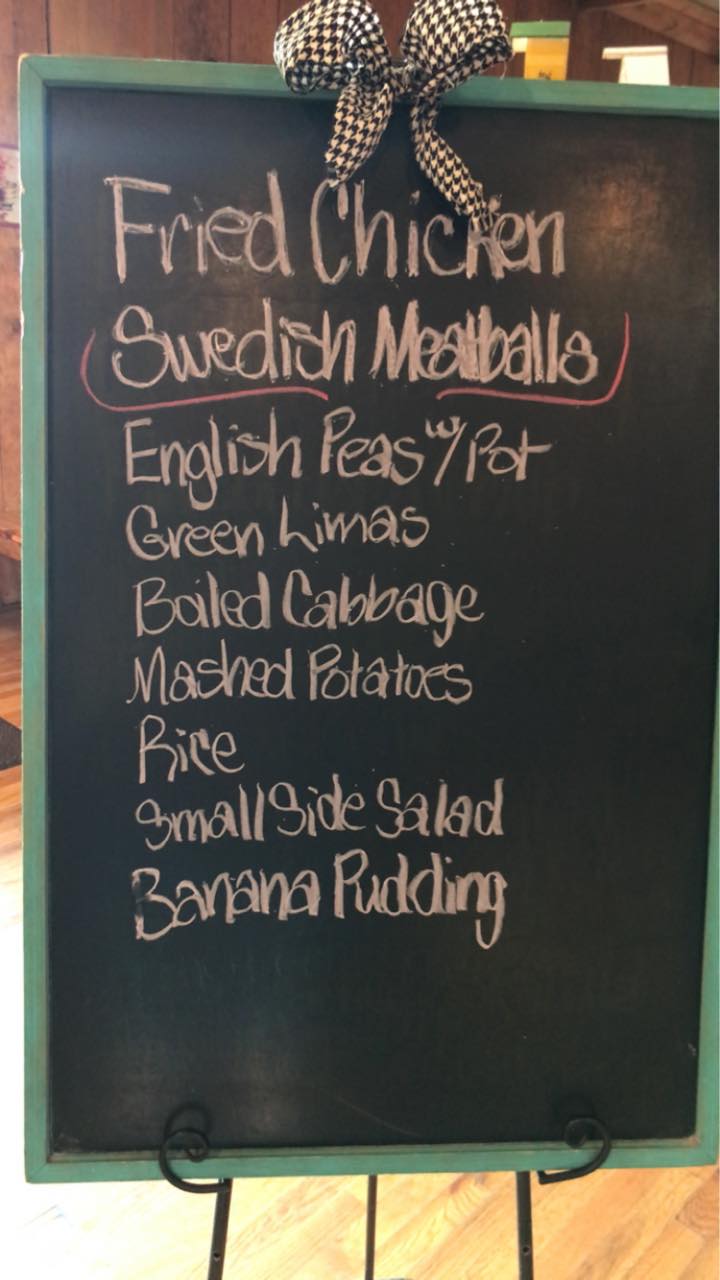 Fried Chicken
Swedish Meatballs
English Peas w/Pot
Green Limas
Boiled Cabbage
Mashed Potatoes
Rice
Small Side Salad
Banana Pudding